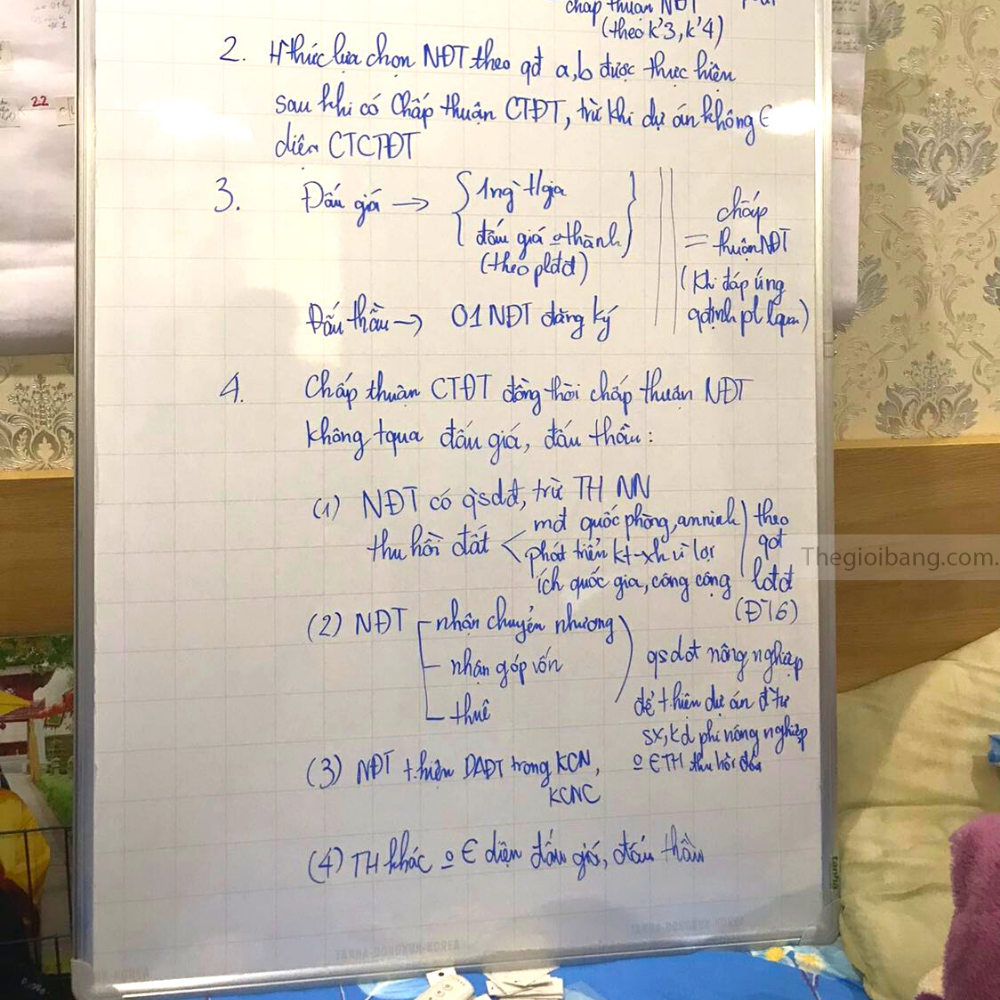 chấp thuận NĐT
(theo k'3, k'4)
2. Hthức lựa chọn NĐT theo qđ a,b được thực hiện
sau khi có Chấp thuận CTĐT, trừ khi dự án không ∈
diện CTCTĐT
3. Đấu giá → { 1ng` t/gia
đấu giá o thành }
(theo plđđ)
Đấu thầu → 01 NĐT đăng ký
chấp
= thuận NĐT
(khi đáp ứng
qđịnh pl lquan)
4. Chấp thuận CTĐT đồng thời chấp thuận NĐT
không tqua đấu giá, đấu thầu:
(1) NĐT có qsdđ, trừ TH NN
thu hồi đất < mđ quốc phòng, an ninh
phát triển kt-xh vì lợi
ích quốc gia, công cộng
theo
qđ
lđđ
(Đ16)
(2) NĐT nhận chuyển nhượng
- nhận góp vốn
- thuê
qsdđt nông nghiệp
để thiện dự án đtư
sx, kd phi nông nghiệp
o ∈ TH thu hồi đất
(3) NĐT thiện DAĐT trong KCN,
KCNC
(4) TH khác o ∈ diện đấu giá, đấu thầu
22
Thegioibang.com.